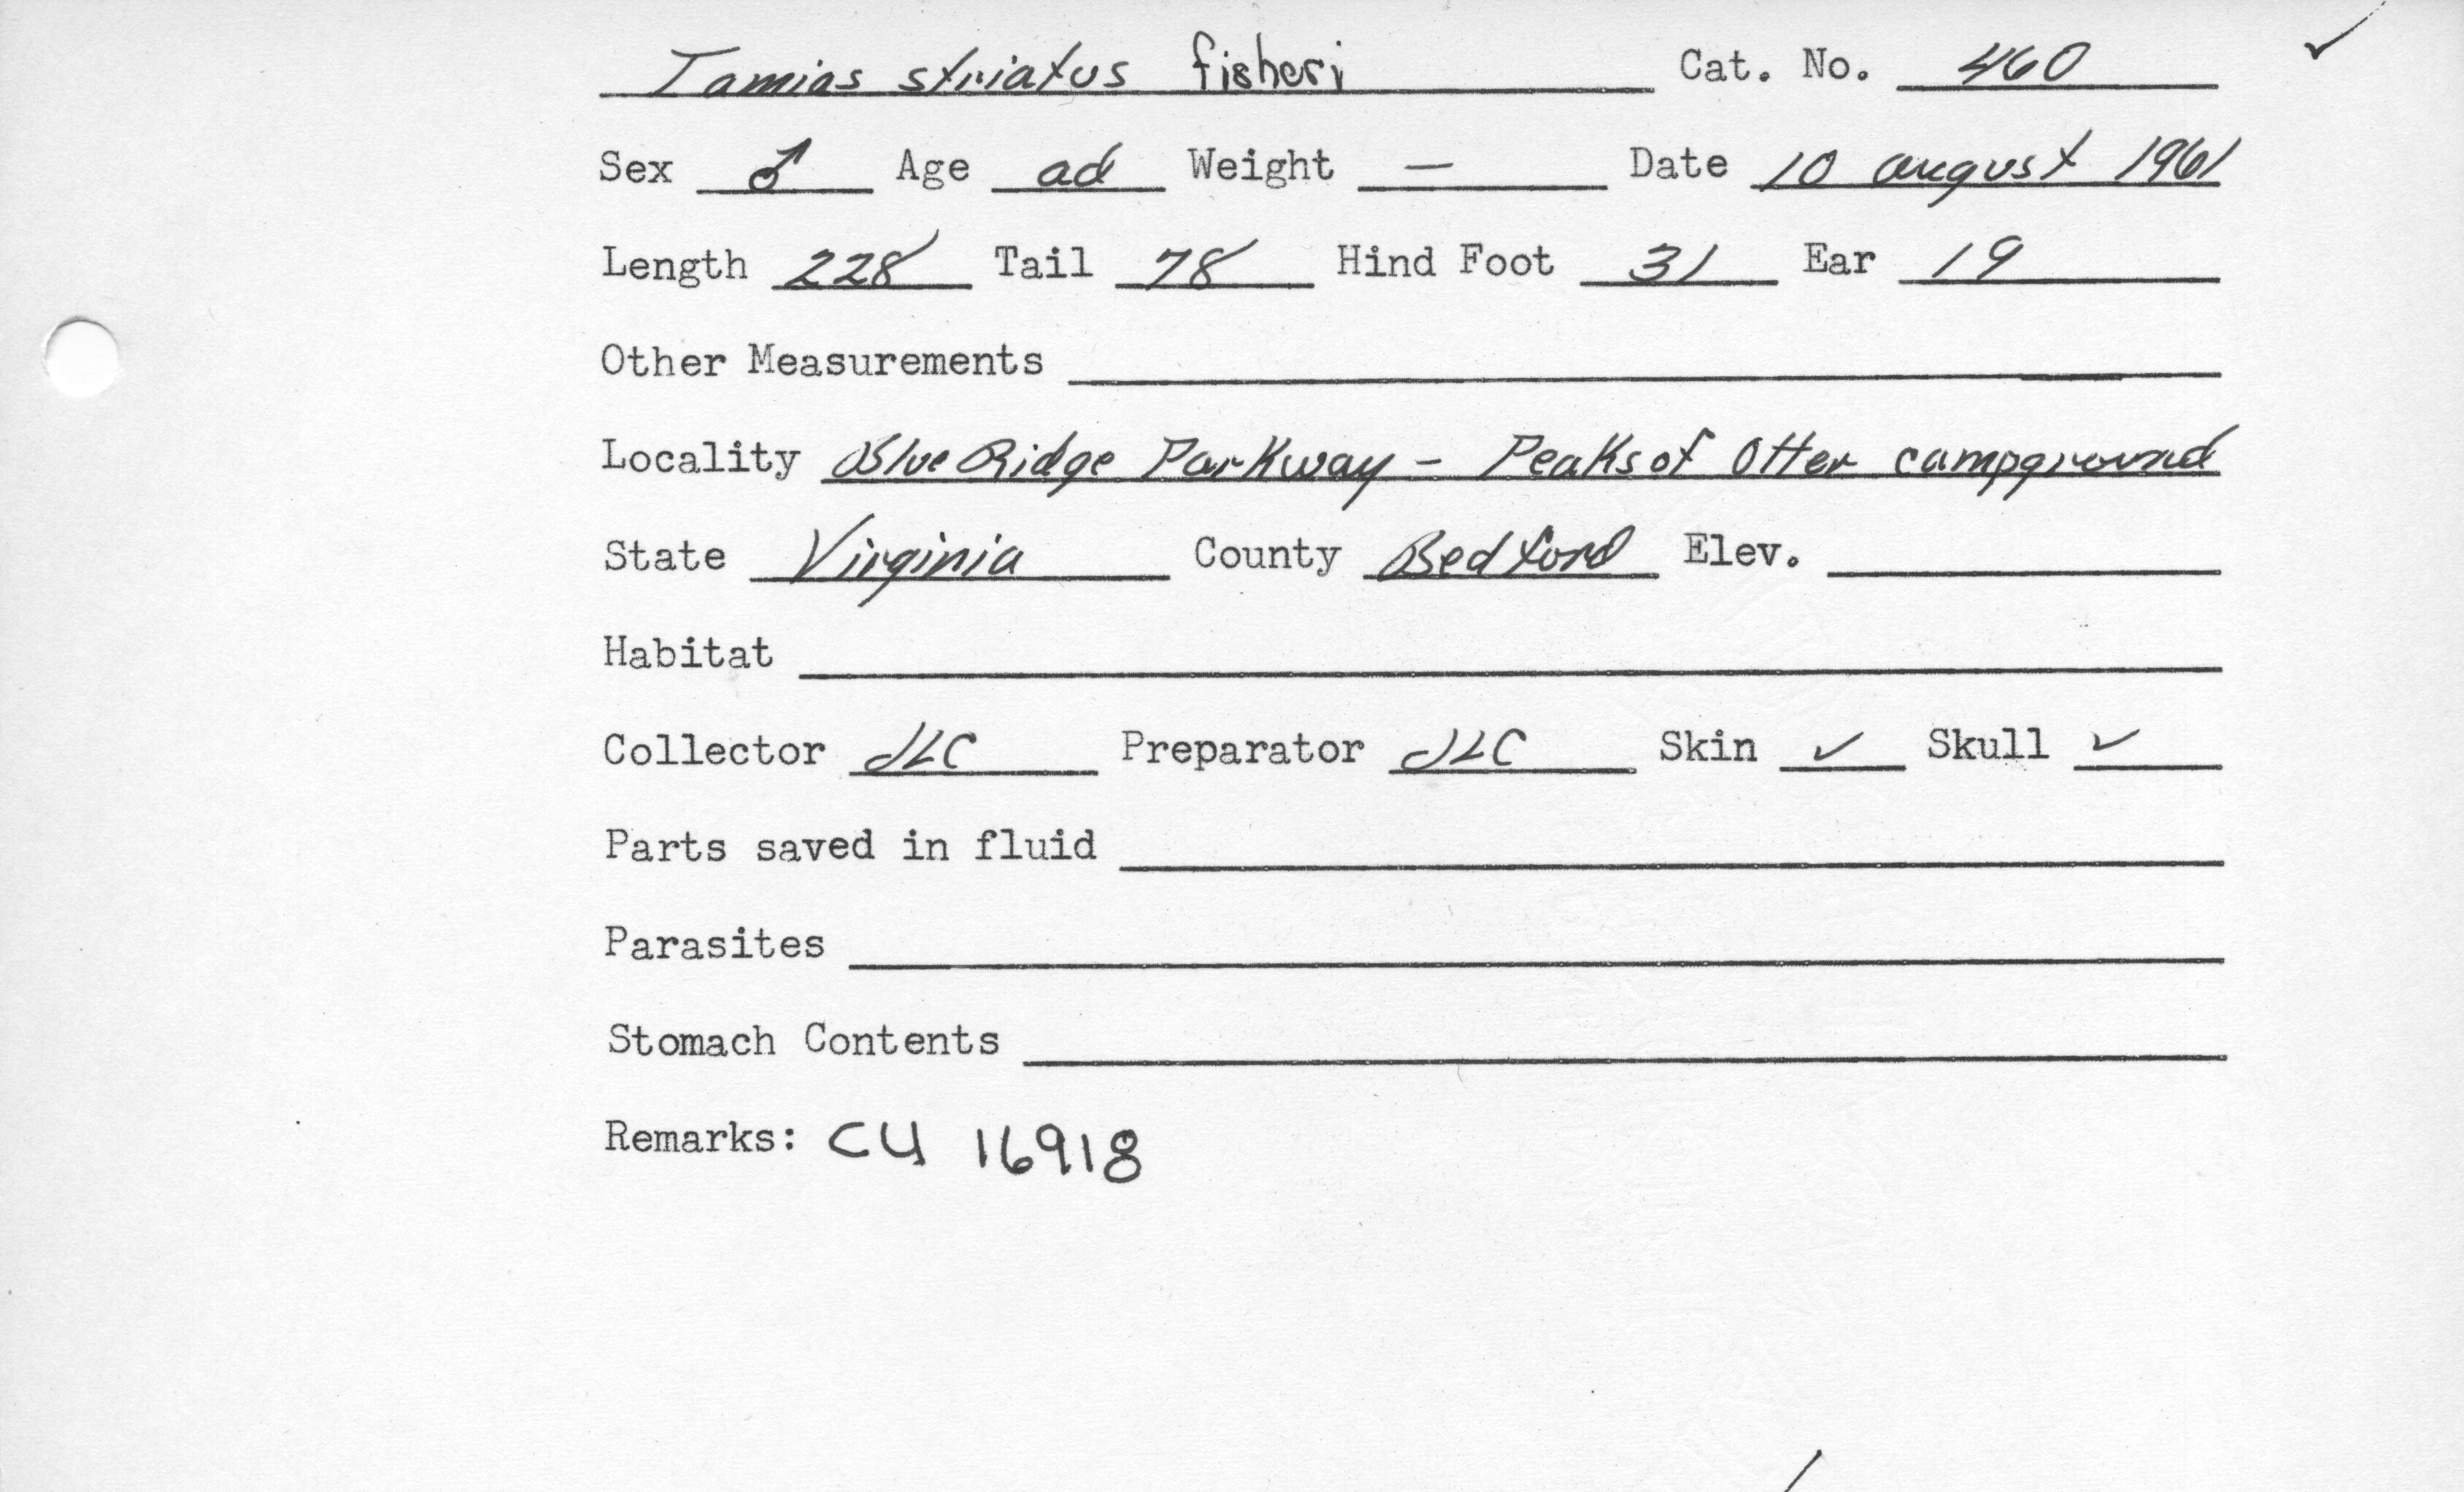 Tamias striatus fisheri Cat. No. 460 ✓
Sex ♂ Age ad Weight — Date 10 august 1961
Length 228 Tail 78 Hind Foot 31 Ear 19
Other Measurements
Locality Blue Ridge Parkway - Peaks of Otter campground
State Virginia County Bedford Elev.
Habitat
Collector JLC Preparator JLC Skin ✓ Skull ✓
Parts saved in fluid
Parasites
Stomach Contents
Remarks: CU 16918